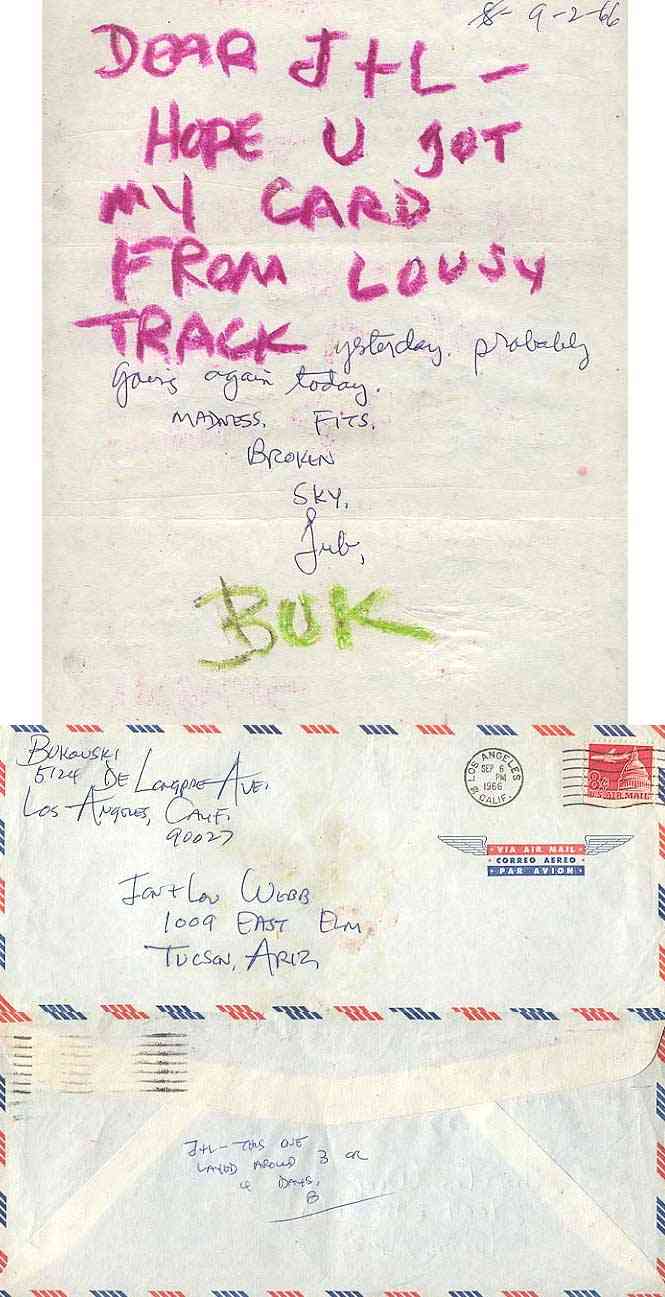 9-2-66
DEAR J+L -
HOPE U GOT
MY CARD
FROM LOUSY
TRACK yesterday. probably
going again today.
MADNESS. FITS.
BROKEN
SKY,
BUK
BUKOWSKI
5124 DE LONGPRE AVE.
LOS ANGELES, CALIF.
90027
LOS ANGELES
SEP 6
PM
1966
CALIF.
8¢
U.S. AIR MAIL
VIA AIR MAIL
CORREO AEREO
PAR AVION
JON + LOU WEBB
1009 EAST ELM
TUCSON, ARIZ
J+L - THIS ONE
LAYED AROUND 3 OR
4 DAYS.
B